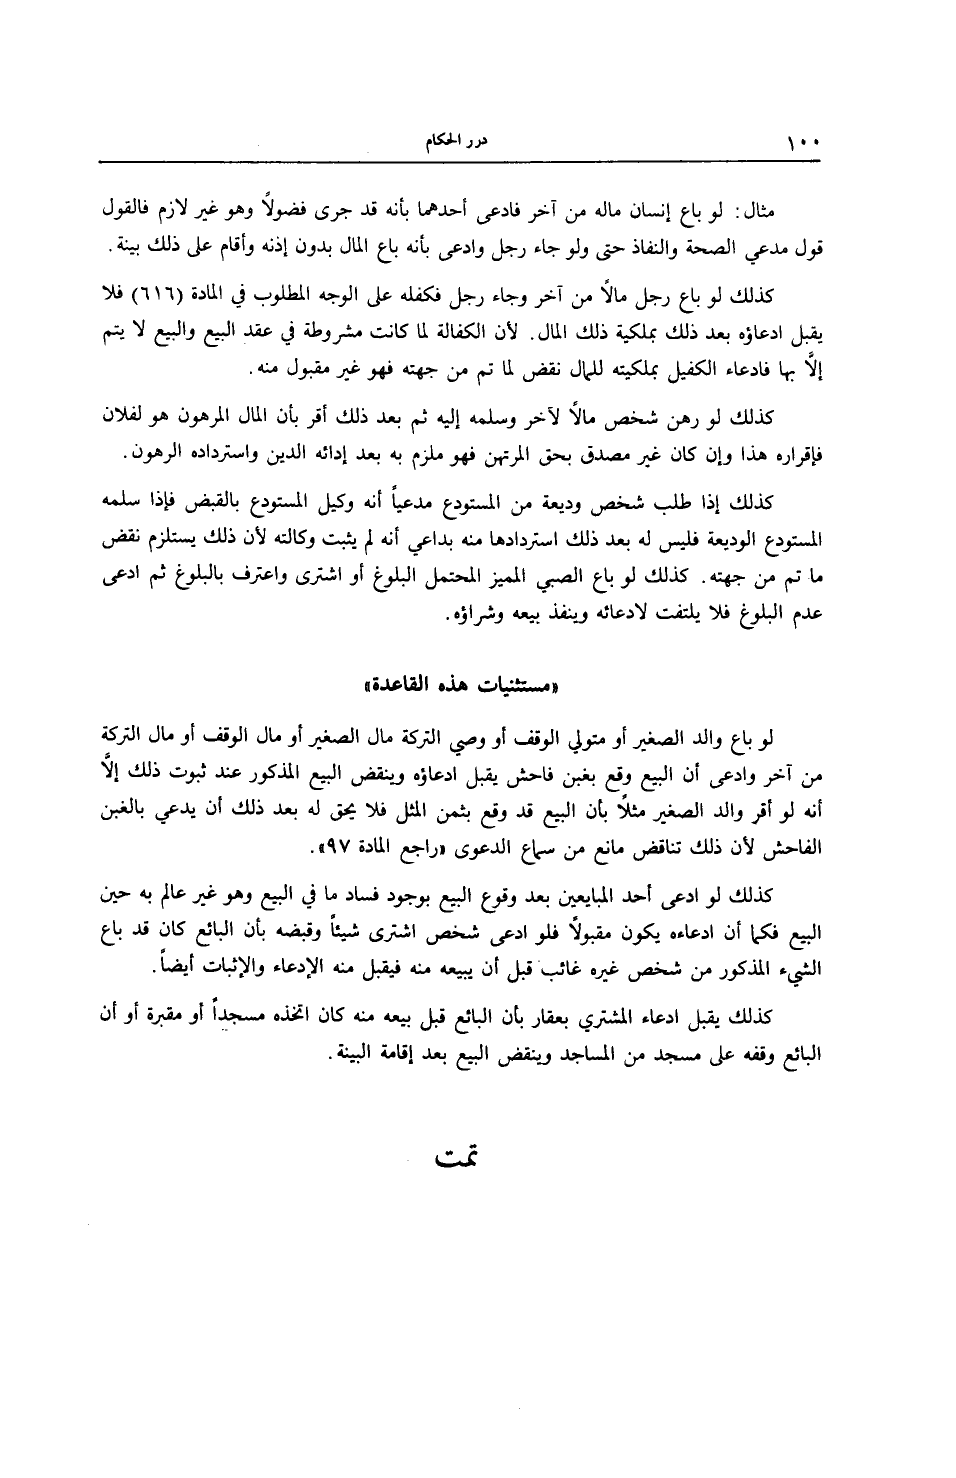 ١٠٠ درر الحكام
مثال: لو باع إنسان ماله من آخر فادعى أحدهما بأنه قد جرى فضولاً وهو غير لازم فالقول
قول مدعي الصحة والنفاذ حتى ولو جاء رجل وادعى بأنه باع المال بدون إذنه وأقام على ذلك بينة.
كذلك لو باع رجل مالاً من آخر وجاء رجل فكفله على الوجه المطلوب في المادة (٦١٦) فلا
يقبل ادعاؤه بعد ذلك بملكية ذلك المال. لأن الكفالة لما كانت مشروطة في عقد البيع والبيع لا يتم
إلَّا بها فادعاء الكفيل بملكيته للمال نقض لما تم من جهته فهو غير مقبول منه.
كذلك لو رهن شخص مالاً لآخر وسلمه إليه ثم بعد ذلك أقر بأن المال المرهون هو لفلان
فإقراره هذا وإن كان غير مصدق بحق المرتهن فهو ملزم به بعد إدائه الدين واسترداده الرهون.
كذلك إذا طلب شخص وديعة من المستودع مدعياً أنه وكيل المستودع بالقبض فإذا سلمه
المستودع الوديعة فليس له بعد ذلك استردادها منه بداعي أنه لم يثبت وكالته لأن ذلك يستلزم نقض
ما تم من جهته. كذلك لو باع الصبي المميز المحتمل البلوغ أو اشترى واعترف بالبلوغ ثم ادعى
عدم البلوغ فلا يلتفت لادعائه وينفذ بيعه وشراؤه.
«مستثنيات هذه القاعدة»
لو باع والد الصغير أو متولي الوقف أو وصي التركة مال الصغير أو مال الوقف أو مال التركة
من آخر وادعى أن البيع وقع بغبن فاحش يقبل ادعاؤه وينقض البيع المذكور عند ثبوت ذلك إلَّا
أنه لو أقر والد الصغير مثلاً بأن البيع قد وقع بثمن المثل فلا يحق له بعد ذلك أن يدعي بالغبن
الفاحش لأن ذلك تناقض مانع من سماع الدعوى «راجع المادة ٩٧».
كذلك لو ادعى أحد المبايعين بعد وقوع البيع بوجود فساد ما في البيع وهو غير عالم به حين
البيع فكما أن ادعاءه يكون مقبولاً فلو ادعى شخص اشترى شيئاً وقبضه بأن البائع كان قد باع
الشيء المذكور من شخص غيره غائب قبل أن يبيعه منه فيقبل منه الإدعاء والإثبات أيضاً.
كذلك يقبل ادعاء المشتري بعقار بأن البائع قبل بيعه منه كان اتخذه مسجداً أو مقبرة أو أن
البائع وقفه على مسجد من المساجد وينقض البيع بعد إقامة البينة.
تمت